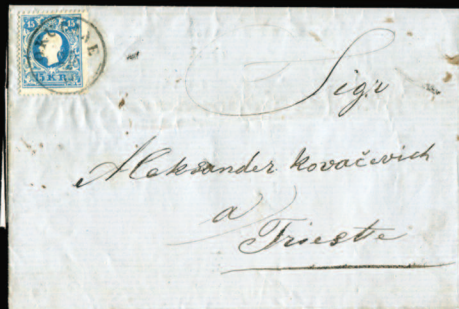 15 15
15 KR.
Sigr
Aleksander Kovačevich
a
Trieste